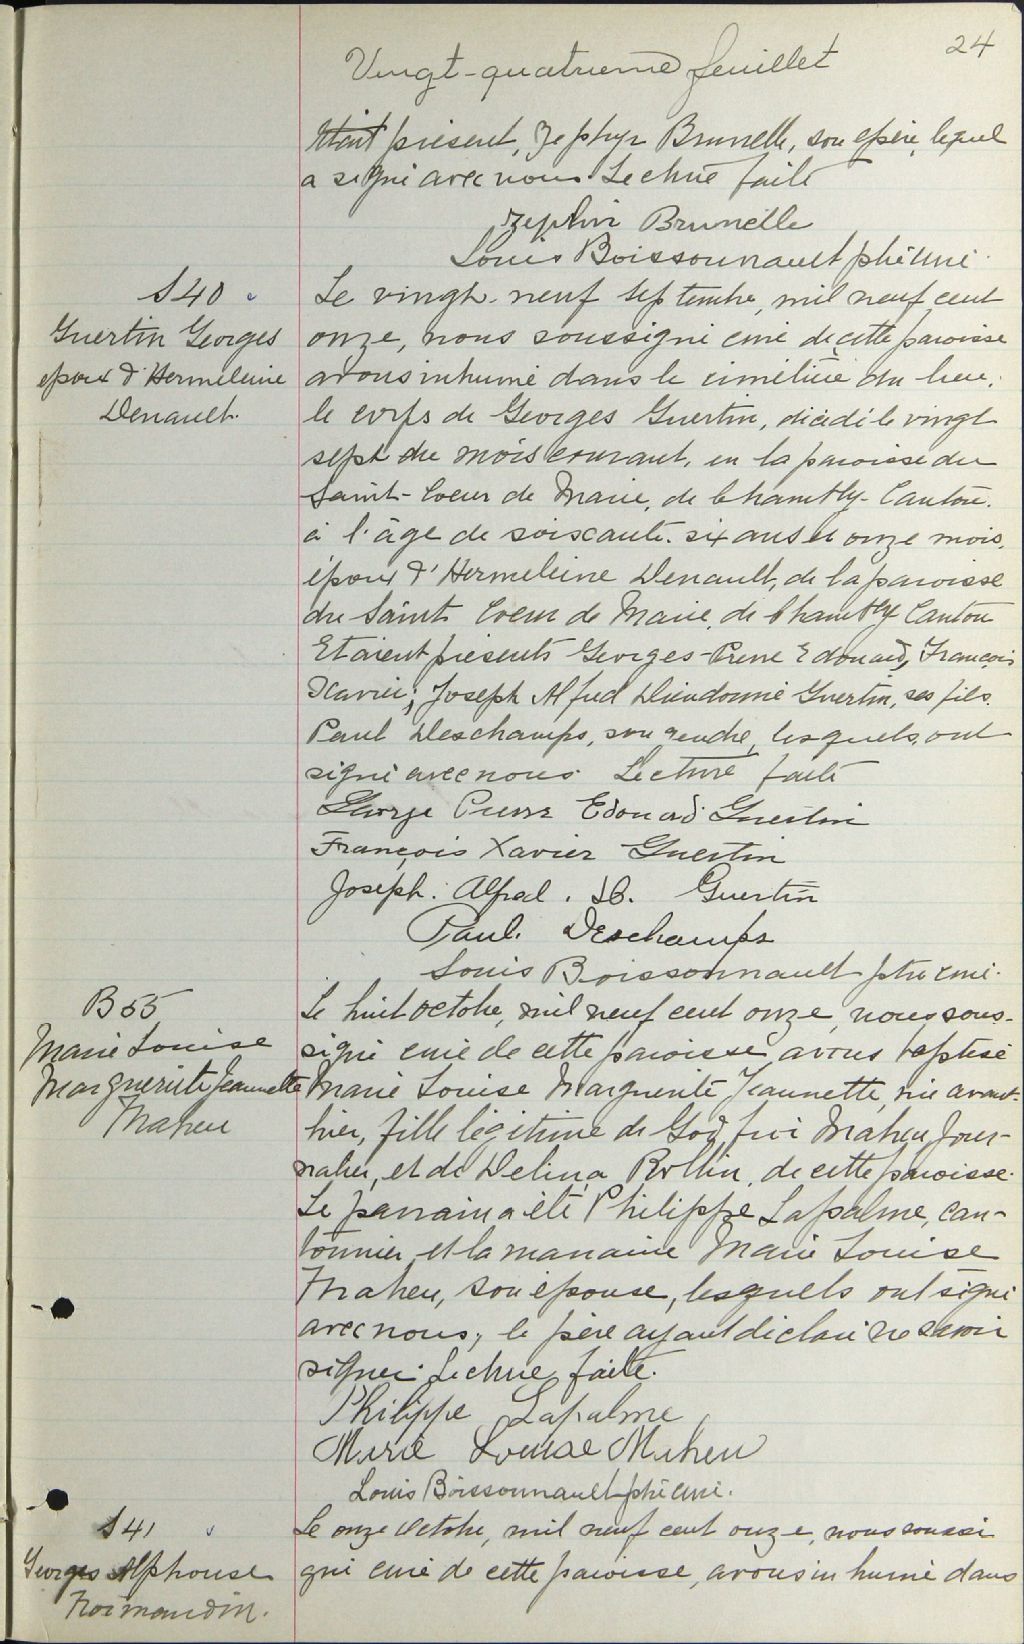 24
Vingt-quatrieme feuillet
était présent, Zephyr Brunelle, son père, lequel
a signé avec nous. Lecture faite
Zephir Brunelle
Louis Boissonnault ptre curé.
S40
Guertin Georges
epoux d'Hermeleine
Denault.
Le vingt-neuf septembre, mil neuf cent
onze, nous soussigné curé de cette paroisse
avons inhumé dans le cimetière du lieu,
le corps de Georges Guertin, décédé le vingt
sept du mois courant, en la paroisse du
Saint-Coeur de Marie, de Chambly-Canton.
à l'âge de soixante-six ans et onze mois,
époux d'Hermeleine Denault, de la paroisse
du Saint Coeur de Marie, de Chambly Canton
Etaient présents Georges-Pierre Edouard, François
Xavier; Joseph Alfred Dieudonné Guertin, ses fils.
Paul Deschamps, son gendre, lesquels ont
signé avec nous. Lecture faite
George Pierre Edouard Guertin
François Xavier Guertin
Joseph. Alfred. D. Guertin
Paul. Deschamps
Louis Boissonnault ptre curé.
B55
Marie Louise
Marguerite Jeannette
Maheu
Le huit octobre, mil neuf cent onze, nous sous-
signé curé de cette paroisse avons baptisé
Marie Louise Marguerite Jeannette, née avant-
hier, fille légitime de Godfroi Maheu, jour-
nalier, et de Delina Rollin, de cette paroisse.
Le parrain a été Philippe Lapalme, can-
tonnier, et la marraine Marie Louise
Maheu, son épouse, lesquels ont signé
avec nous, le père ayant déclaré ne savoir
signer. Lecture faite.
Philippe Lapalme
Marie Louise Maheu
Louis Boissonnault ptre curé.
S41
Georges Alphonse
Normandin.
Le onze octobre, mil neuf cent onze, nous soussi
gné curé de cette paroisse, avons inhumé dans